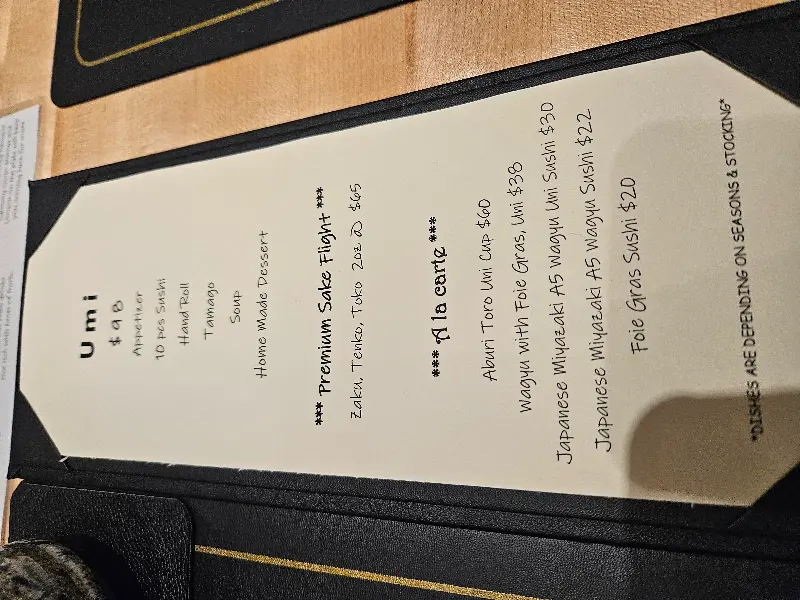 Umi
$98
Appetizer
10 pcs Sushi
Hand Roll
Tamago
Soup
Home Made Dessert
*** Premium Sake Flight ***
Zaku, Tenko, Toko 2oz @ $65
*** A la carte ***
Aburi Toro Uni Cup $60
Wagyu with Foie Gras, Uni $38
Japanese Miyazaki A5 Wagyu Uni Sushi $30
Japanese Miyazaki A5 Wagyu Sushi $22
Foie Gras Sushi $20
*DISHES ARE DEPENDING ON SEASONS & STOCKING*